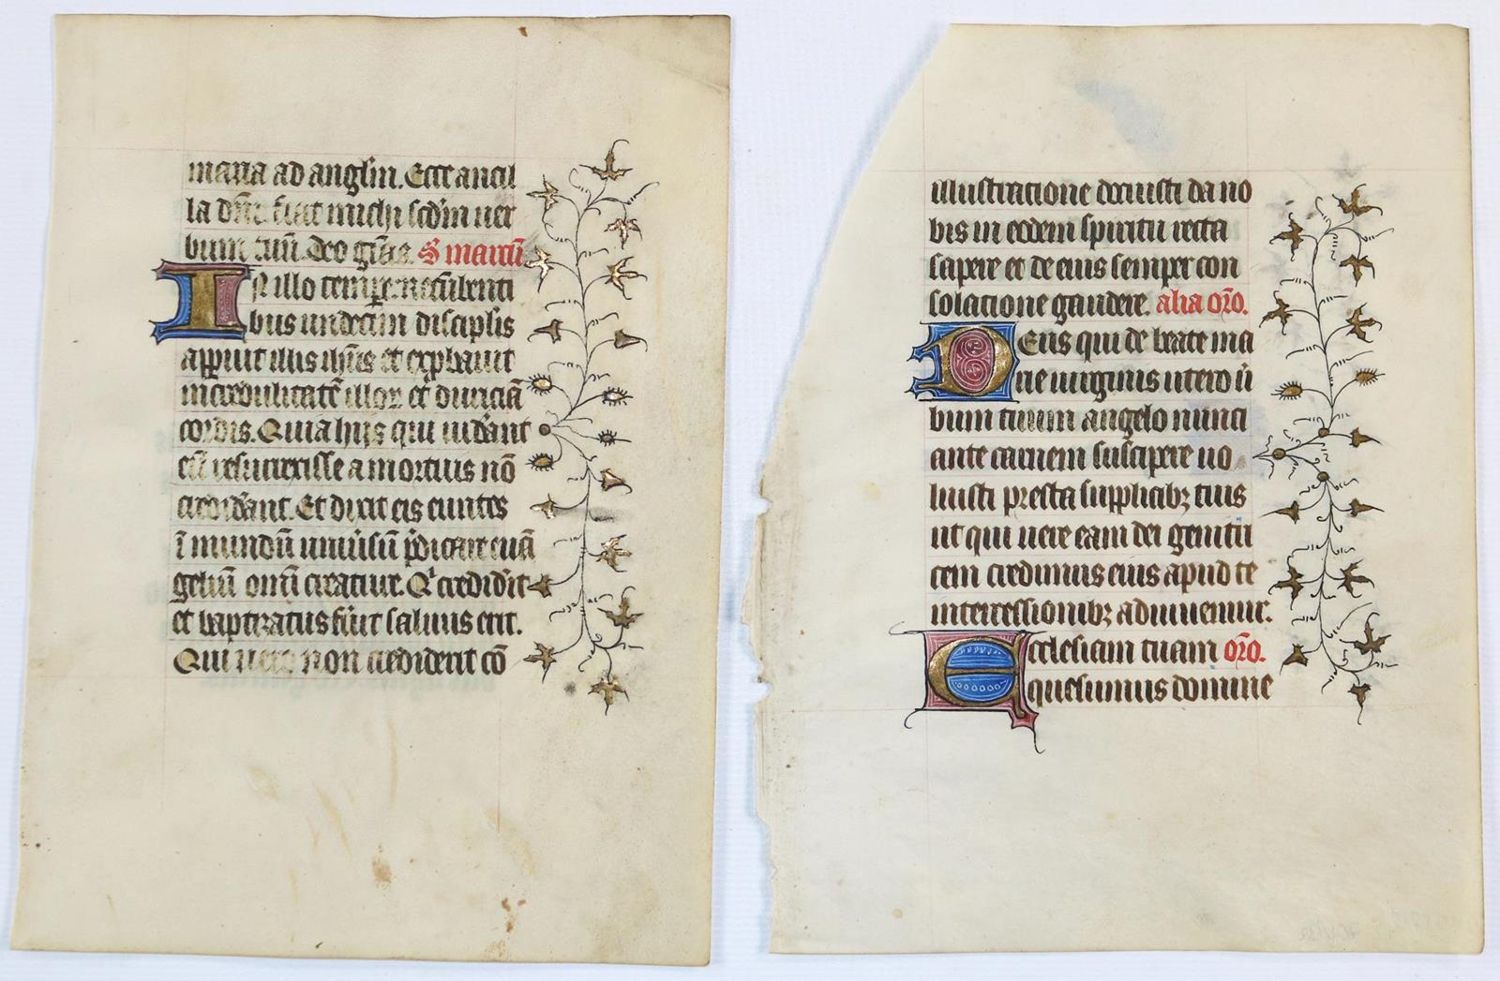 maria ad anglm. Ecce ancil
la dñi. fiat michi scdm uer
bum tuũ. Deo grãs. S marcũ
IN illo tempe: recũbenti
bus undecim disciplis
apparuit illis ihũs et exprbauit
incredulitatẽ illor et duriciã
cordis. Quia hijs qui uidant
eũ resurrexisse a mortuis nõ
credidant. Et dixit eis euntes
ĩ mundũ uniusũ pdicate euã
geliũ omĩ creature. Qi credidit
et baptizatus fuit saluus erit.
Qui uero non crediderit cõ
illustratione docuisti da no
bis in eodem spiritu recta
sapere et de eius semper con
solatione gaudere. alia orõ.
Deus qui de beate ma
rie uirginis utero ũ
bum tuum angelo nunci
ante carnem suscipere uo
luisti presta supplicibꝫ tuis
ut qui uere eam dei genitri
cem credimus eius apud te
intercessionibꝫ adiuuemur.
Ecclesiam tuam orõ.
quesumus domine